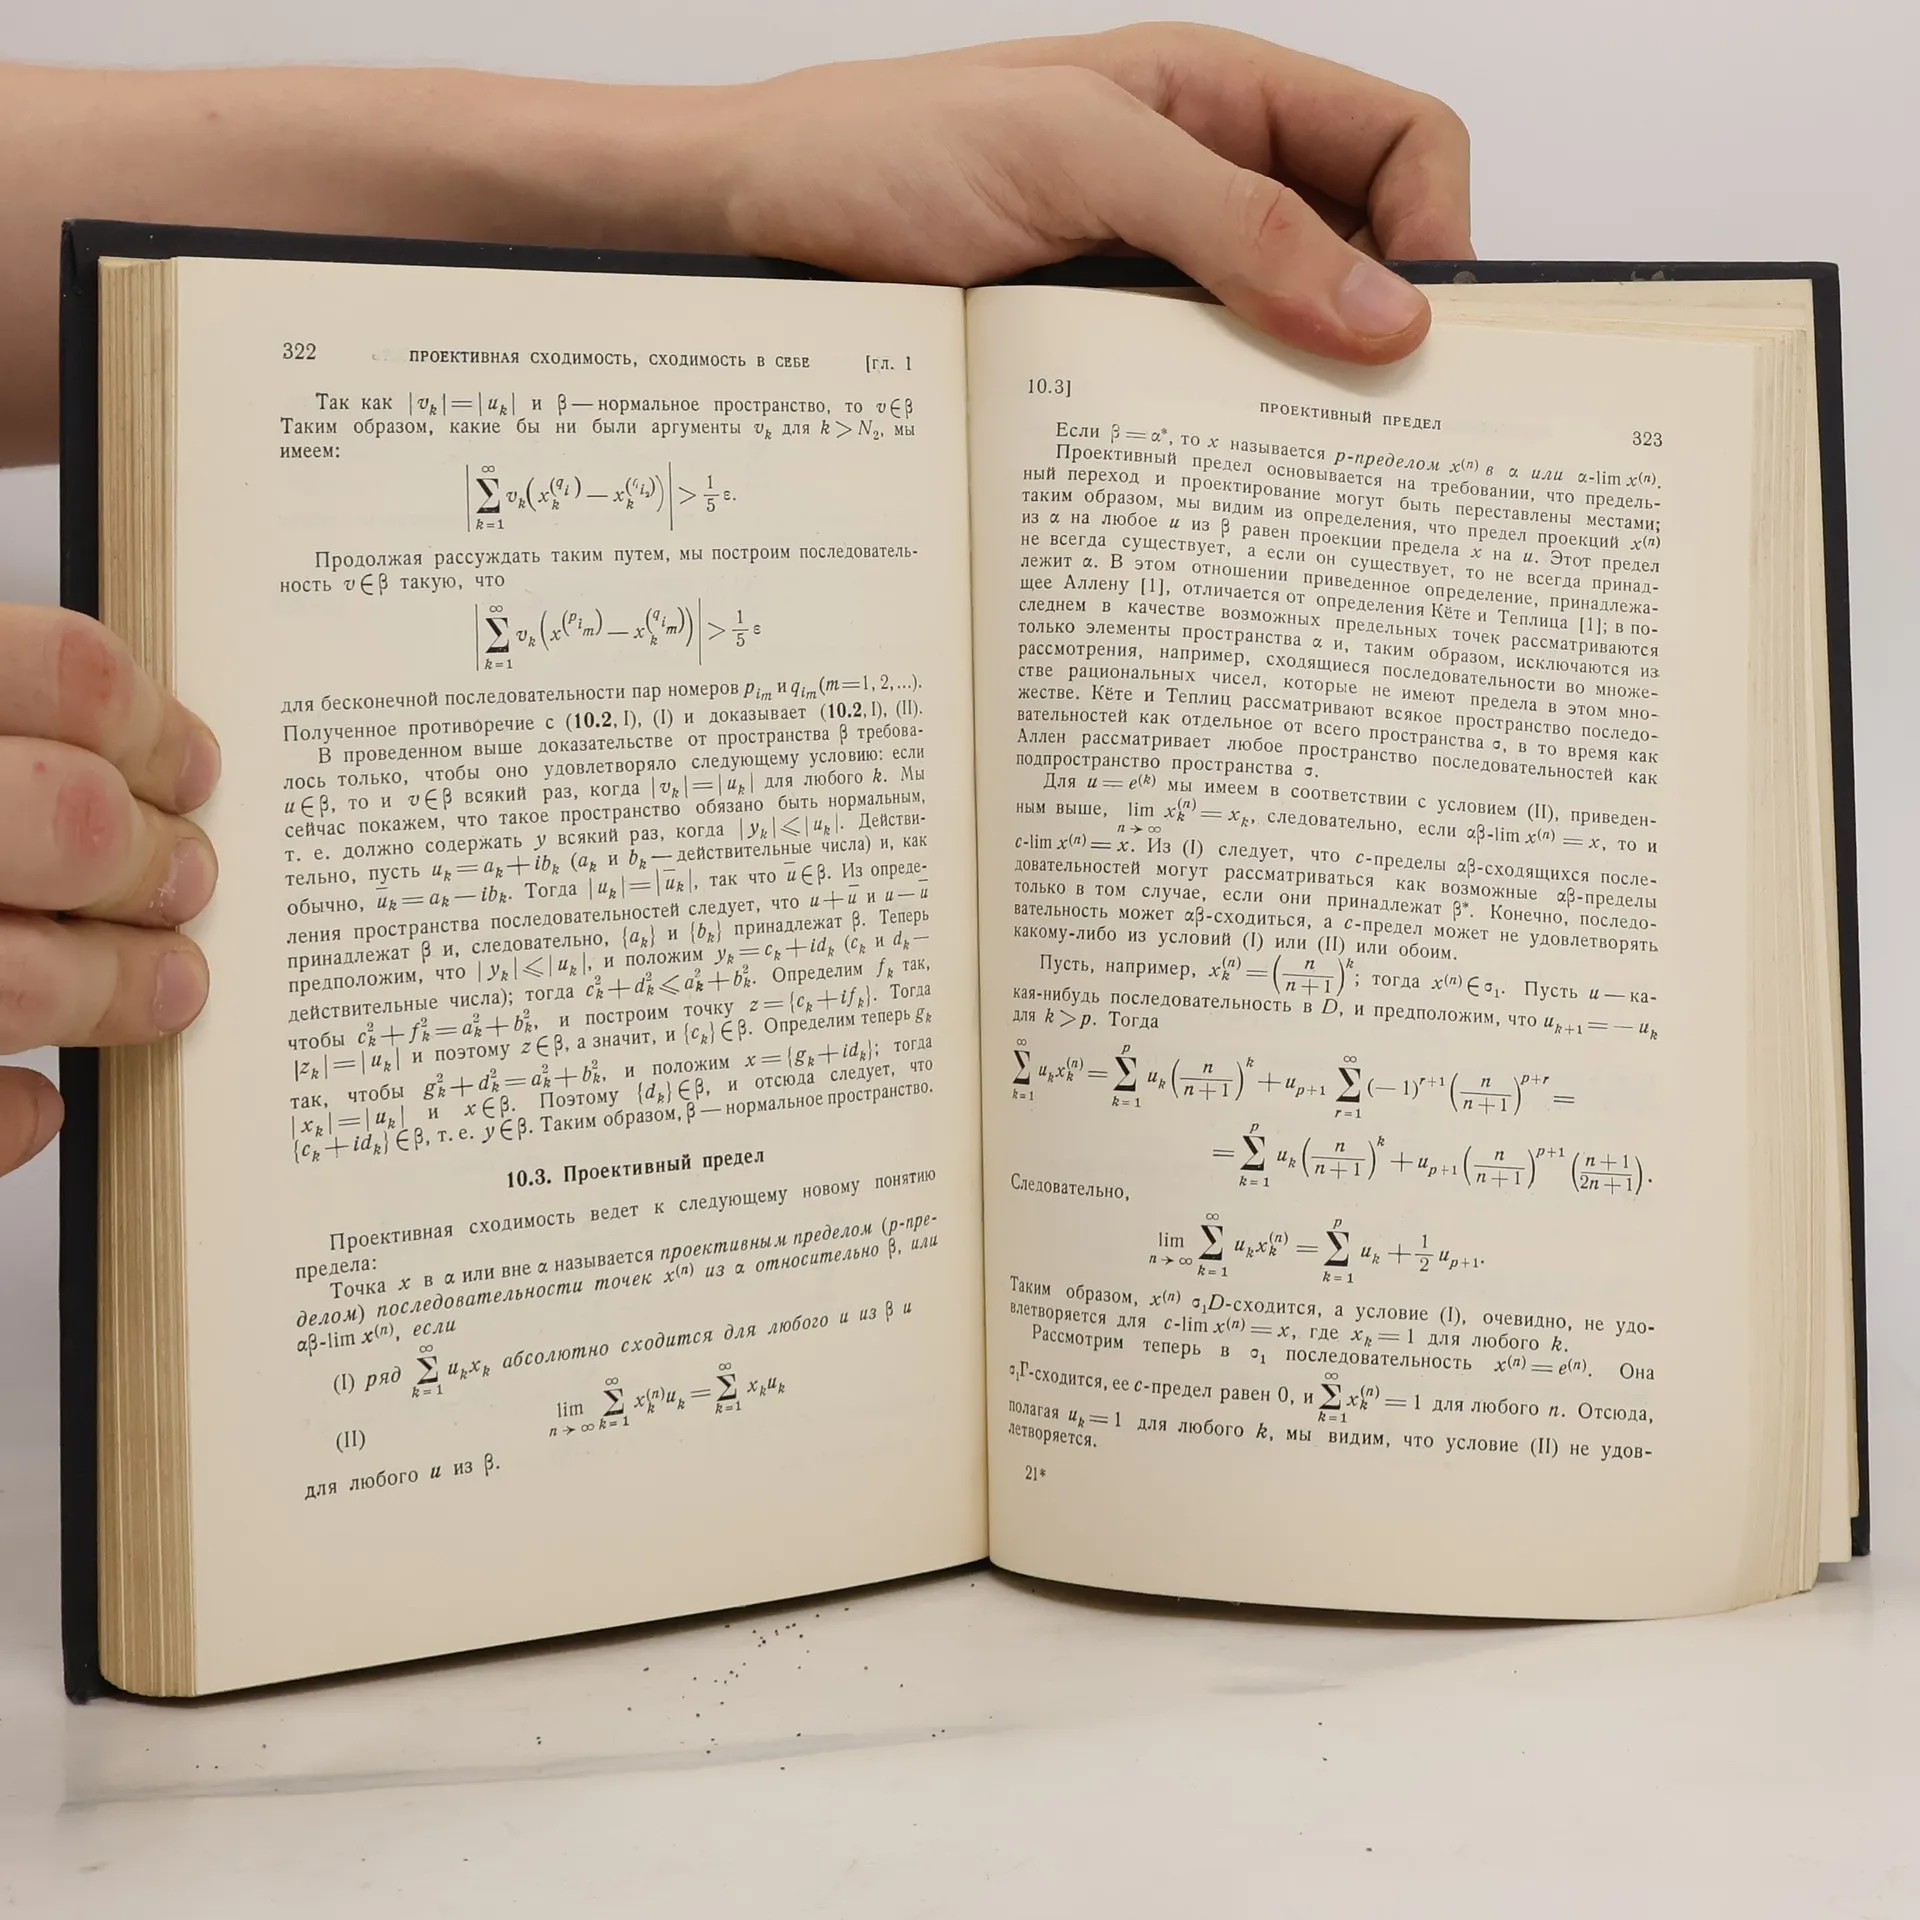 322 ПРОЕКТИВНАЯ СХОДИМОСТЬ, СХОДИМОСТЬ В СЕБЕ [гл. 1
Так как |v_k|=|u_k| и β — нормальное пространство, то v∈β
Таким образом, какие бы ни были аргументы v_k для k > N_2, мы
имеем:
|∑_{k=1}^{∞} v_k(x_k^{(q_i)} — x_k^{(q_{i_2})})| > 1/5 ε.
Продолжая рассуждать таким путем, мы построим последователь-
ность v∈β такую, что
|∑_{k=1}^{∞} v_k(x^{(p_{i_m})} — x_k^{(q_{i_m})})| > 1/5 ε
для бесконечной последовательности пар номеров p_{i_m} и q_{i_m} (m=1, 2,...).
Полученное противоречие с (10.2, I), (I) и доказывает (10.2, I), (II).
В проведенном выше доказательстве от пространства β требова-
лось только, чтобы оно удовлетворяло следующему условию: если
u∈β, то и v∈β всякий раз, когда |v_k|=|u_k| для любого k. Мы
сейчас покажем, что такое пространство обязано быть нормальным,
т. е. должно содержать y всякий раз, когда |y_k|⩽|u_k|. Действи-
тельно, пусть u_k = a_k + ib_k (a_k и b_k — действительные числа) и, как
обычно, ū_k = a_k — ib_k. Тогда |u_k|=|ū_k|, так что ū∈β. Из опреде-
ления пространства последовательностей следует, что u+ū и u—ū
принадлежат β и, следовательно, {a_k} и {b_k} принадлежат β. Теперь
предположим, что |y_k|⩽|u_k|, и положим y_k = c_k + id_k (c_k и d_k —
действительные числа); тогда c_k^2 + d_k^2 ⩽ a_k^2 + b_k^2. Определим f_k так,
чтобы c_k^2 + f_k^2 = a_k^2 + b_k^2, и построим точку z = {c_k + if_k}. Тогда
|z_k|=|u_k| и поэтому z∈β, а значит, и {c_k}∈β. Определим теперь g_k
так, чтобы g_k^2 + d_k^2 = a_k^2 + b_k^2, и положим x = {g_k + id_k}; тогда
|x_k|=|u_k| и x∈β. Поэтому {d_k}∈β, и отсюда следует, что
{c_k + id_k}∈β, т. е. y∈β. Таким образом, β — нормальное пространство.
10.3. Проективный предел
Проективная сходимость ведет к следующему новому понятию
предела:
Точка x в α или вне α называется проективным пределом (p-пре-
делом) последовательности точек x^{(n)} из α относительно β, или
αβ-lim x^{(n)}, если
(I) ряд ∑_{k=1}^{∞} u_k x_k абсолютно сходится для любого u из β и
(II) lim_{n→∞} ∑_{k=1}^{∞} x_k^{(n)} u_k = ∑_{k=1}^{∞} x_k u_k
для любого u из β.
10.3] ПРОЕКТИВНЫЙ ПРЕДЕЛ 323
Если β = α*, то x называется p-пределом x^{(n)} в α или α-lim x^{(n)}.
Проективный предел основывается на требовании, что предель-
ный переход и проектирование могут быть переставлены местами;
таким образом, мы видим из определения, что предел проекций x^{(n)}
из α на любое u из β равен проекции предела x на u. Этот предел
не всегда существует, а если он существует, то не всегда принад-
лежит α. В этом отношении приведенное определение, принадлежа-
щее Аллену [1], отличается от определения Кёте и Теплица [1]; в по-
следнем в качестве возможных предельных точек рассматриваются
только элементы пространства α и, таким образом, исключаются из
рассмотрения, например, сходящиеся последовательности во множе-
стве рациональных чисел, которые не имеют предела в этом мно-
жестве. Кёте и Теплиц рассматривают всякое пространство последо-
вательностей как отдельное от всего пространства σ, в то время как
Аллен рассматривает любое пространство последовательностей как
подпространство пространства σ.
Для u = e^{(k)} мы имеем в соответствии с условием (II), приведен-
ным выше, lim_{n→∞} x_k^{(n)} = x_k, следовательно, если αβ-lim x^{(n)} = x, то и
c-lim x^{(n)} = x. Из (I) следует, что c-пределы αβ-сходящихся после-
довательностей могут рассматриваться как возможные αβ-пределы
только в том случае, если они принадлежат β*. Конечно, последо-
вательность может αβ-сходиться, а c-предел может не удовлетворять
какому-либо из условий (I) или (II) или обоим.
Пусть, например, x_k^{(n)} = (n/(n+1))^k; тогда x^{(n)}∈σ_1. Пусть u — ка-
кая-нибудь последовательность в D, и предположим, что u_{k+1} = — u_k
для k > p. Тогда
∑_{k=1}^{∞} u_k x_k^{(n)} = ∑_{k=1}^{p} u_k (n/(n+1))^k + u_{p+1} ∑_{r=1}^{∞} (—1)^{r+1} (n/(n+1))^{p+r} =
= ∑_{k=1}^{p} u_k (n/(n+1))^k + u_{p+1} (n/(n+1))^{p+1} ((n+1)/(2n+1)).
Следовательно,
lim_{n→∞} ∑_{k=1}^{∞} u_k x_k^{(n)} = ∑_{k=1}^{p} u_k + 1/2 u_{p+1}.
Таким образом, x^{(n)} σ_1D-сходится, а условие (I), очевидно, не удо-
влетворяется для c-lim x^{(n)} = x, где x_k = 1 для любого k.
Рассмотрим теперь в σ_1 последовательность x^{(n)} = e^{(n)}. Она
σ_1Γ-сходится, ее c-предел равен 0, и ∑_{k=1}^{∞} x_k^{(n)} = 1 для любого n. Отсюда,
полагая u_k = 1 для любого k, мы видим, что условие (II) не удов-
летворяется.
21*